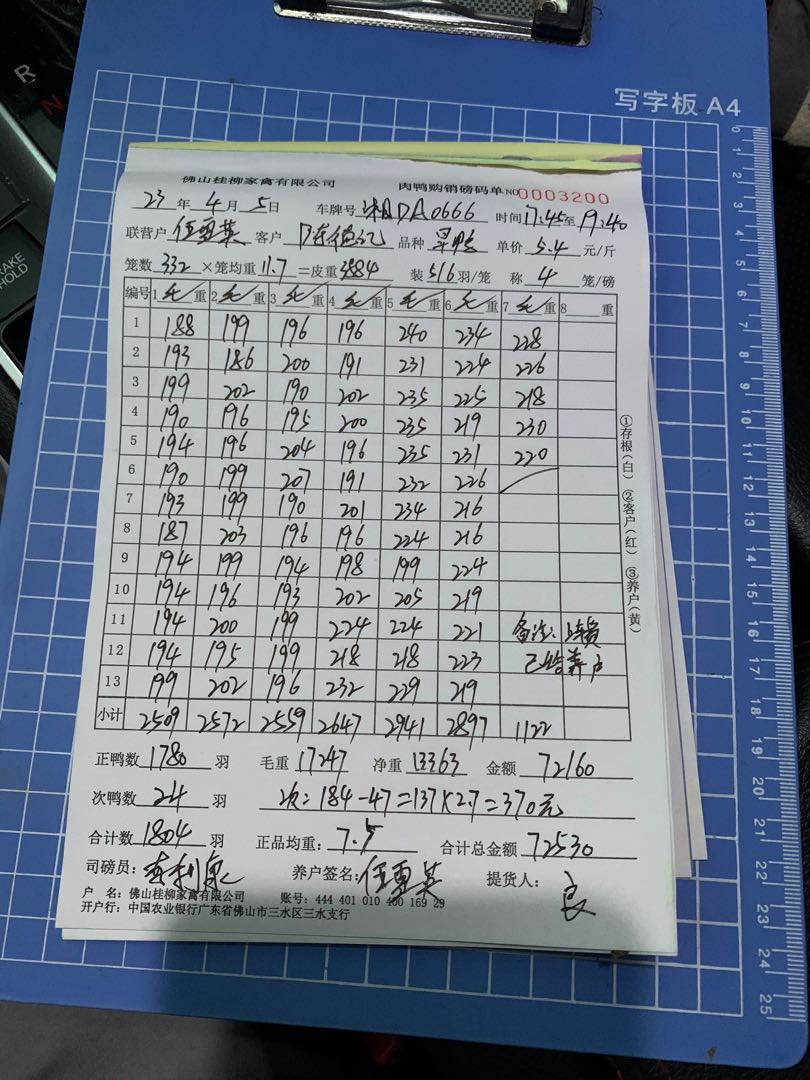 写字板 A4
佛山桂柳家禽有限公司 肉鸭购销磅码单 NO 0003200
23 年 4 月 5 日 车牌号 湘DA0666 时间 17:45 至 19:40
联营户 伍更英 客户 陈德记 品种 旱鸭 单价 5.4 元/斤
笼数 332 ×笼均重 11.7 =皮重 3884 装 5/6 羽/笼 称 4 笼/磅
编号 1 毛 重 2 毛 重 3 毛 重 4 毛 重 5 毛 重 6 毛 重 7 毛 重 8 重
1 188 199 196 196 240 234 228
2 193 186 200 191 231 224 226
3 199 202 190 202 235 225 218
4 190 196 195 200 235 219 230
5 194 196 204 196 235 231 220
6 190 199 207 191 232 226
7 193 199 190 201 234 216
8 187 203 196 196 224 216
9 194 199 194 198 199 224
10 194 196 193 202 205 219
11 194 200 199 224 224 221 备注:
12 194 195 199 218 218 223 已给养户
13 199 202 196 232 229 219
小计 2509 2572 2559 2647 2941 2897 1122
正鸭数 1780 羽 毛重 17247 净重 13363 金额 72160
次鸭数 24 羽 次:184-47=137×2.7=370元
合计数 1804 羽 正品均重: 7.5 合计总金额 72530
司磅员: 养户签名: 伍更英 提货人: 良
户 名:佛山桂柳家禽有限公司 账号:444 401 010 400 169 29
开户行:中国农业银行广东省佛山市三水区三水支行
①存根(白) ②客户(红) ③养户(黄)
0 1 2 3 4 5 6 7 8 9 10 11 12 13 14 15 16 17 18 19 20 21 22 23 24 25
R
N
BRAKE
HOLD